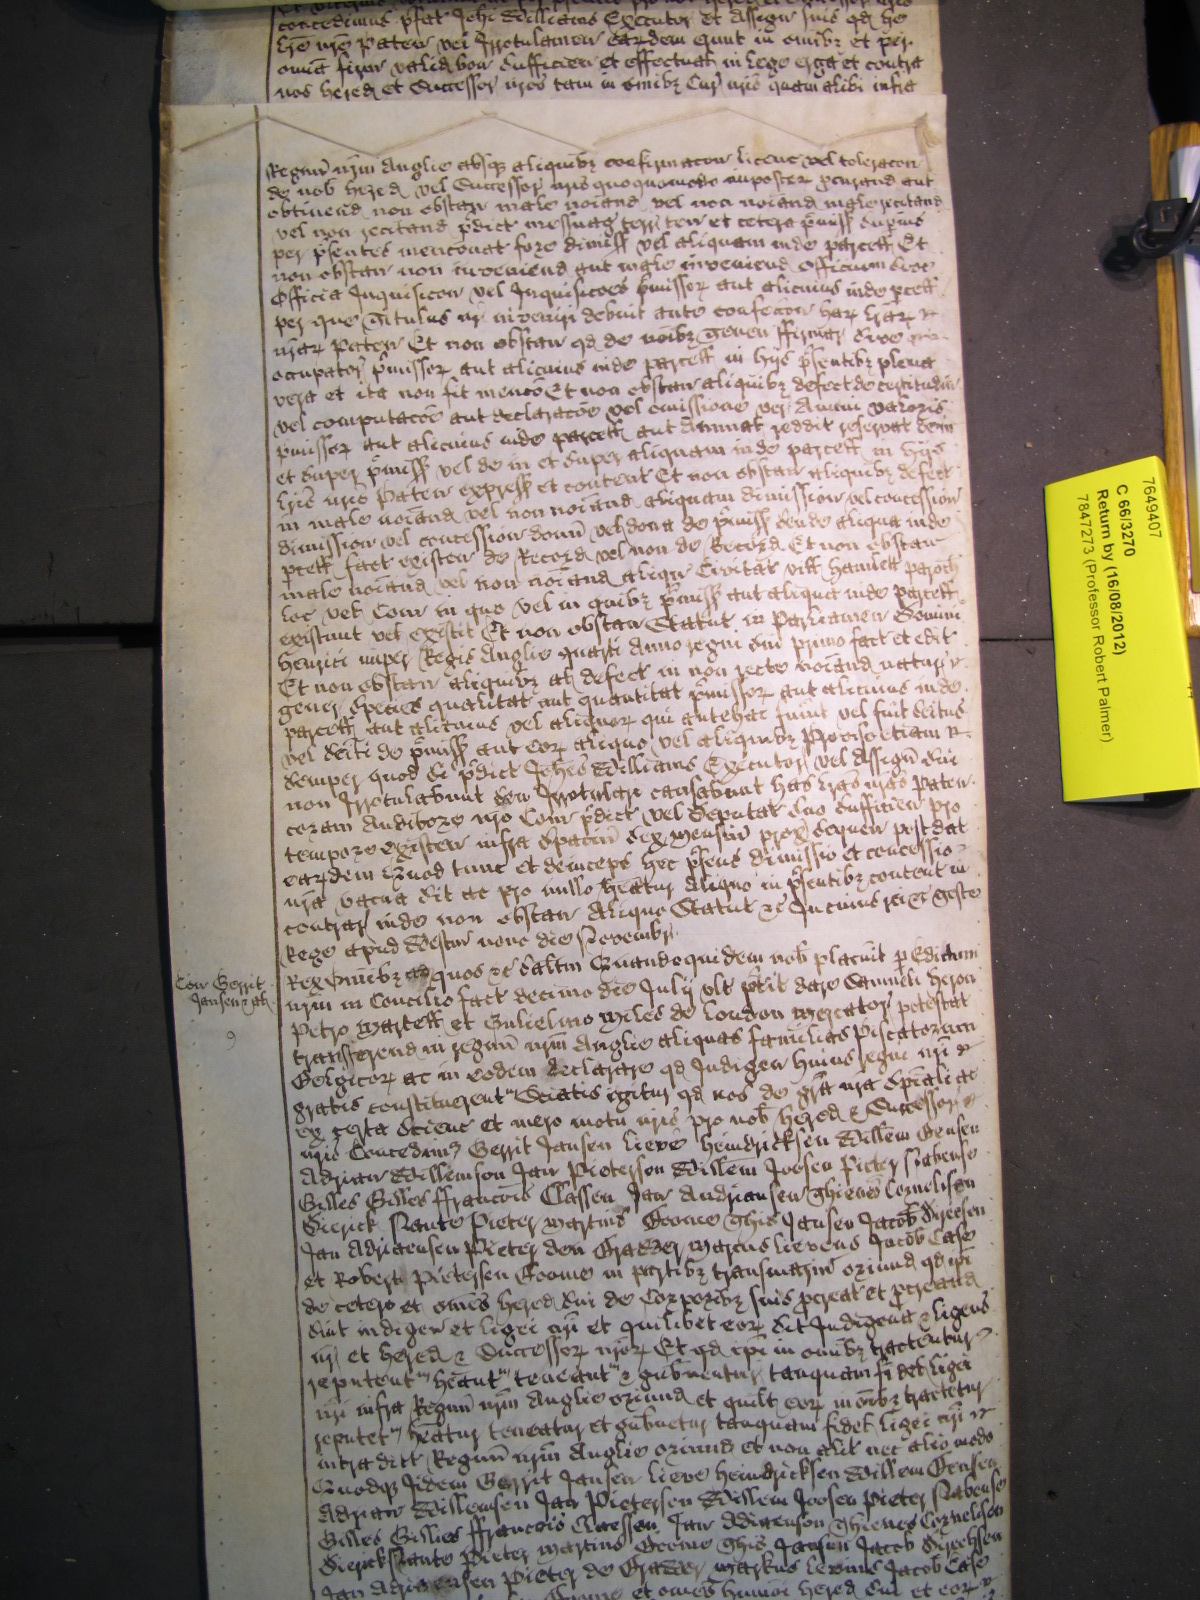 concedimus p̄fat Johi Williams Executor et Assign suis qd he
lr̄e nr̄e Paten vel Irrotulamen eardem erunt in omibz et per
omia firm valid bon sufficien et effectual in lege erga et contra
nos hered et Successor nr̄os tam in omibz Cur nr̄is quam alibi infra
Regnū nr̄m Anglie absqz aliquibz confirmacon licenc vel toleracon
de nob hered vel Successor nr̄is quoquomodo imposter p̄curand aut
obtinend non obstan male noīand vel non noīand male recitand
vel non recitand p̄dict messuag terr ten et cetera p̄miss supius
per p̄sentes menconat fore dimiss vel aliquam inde parcell Et
non obstan non inveniend aut male inveniend Officium sive
Officia Inquisicon vel Inquisicoēs p̄missor aut alicuius inde pcell
per que Titulus nr̄ inveniri debuit ante confeccon har lrar
nr̄ar Paten Et non obstan qd de noībz Tenen ffirmar sive
occupator p̄missor aut alicuius inde parcell in hijs p̄sentibz plena
vera et ita non fit mencō Et non obstan aliquibz defect de certitudin
vel computacōe aut declaracōe vel omissione veri Annui valoris
p̄missor aut alicuius inde parcell aut Annual reddit reservat de in
et super p̄miss vel de in et super aliquam inde parcell in hijs
lr̄is nr̄is Paten express et content Et non obstan aliquibz defect
in male noīand vel non noīand aliquam dimission vel concession
dimission vel concession donū vel dona de p̄miss seu de aliqua inde
pcell fact existen de Record vel non de Record Et non obstan
male noīand vel non noīand aliqu Civitat vill Hamlett paroch
loc vel Com in quo vel in quibz p̄miss aut aliqua inde parcell
existunt vel existit Et non obstan Statut in Parliamen Domini
Henrici nuper Regis Anglie quarti Anno regni sui primo fact et edit
Et non obstan aliquibz al defect in non recte noīand natur
gener species qualitat aut quantitat p̄missor aut alicuius inde
parcell aut alicuius vel aliquor qui antehac fuīnt vel fuit seitus
vel seiti de p̄miss aut eor aliquo vel aliquibz Proviso etiam
semper quod si p̄dict Johes Williams Executor vel Assign sui
non Irrotulabunt seu Irrotular causabunt has lr̄as nr̄as Paten
coram Auditore nr̄o Com p̄dict vel Deputat suo sufficien pro
tempore existen infra Spaciū sex mensiū prox sequen post dat
eardem Quod tunc et deinceps hec p̄sens dimissio et concessio
nr̄a vacua sit ac pro nullo heatur Aliquo in p̄sentibz content in
contrar inde non obstan Aliquo Statut &c In cuius rei &c Teste
Rege apud Westm nono die Novembr
Con Gerrit
Jansen & al
9
Rex Omibz ad quos &c Saltm Quandoquidem nob placuit p Edictum
nr̄m in Concilio fact decimo die July ult p̄tit dare Samueli Heron
Petro Martell et Gulielmo Myles de London Mercator potestat
transferend in regnū nr̄m Anglie aliquas familias Piscatorum
Belgicor ac in eodem declarare qd Indigen huius regni nr̄i
gratis constituerent Sciatis igitur qd nos de gr̄a nr̄a sp̄iali ac
ex certa scienc et mero motu nr̄is pro nob hered & Successor
nr̄is Concedim9 Gerrit Jansen Lieve Heindricksen Willem Gensen
Adrian Willemson Jan Pieterson Willem Joosen Pieter Nabense
Gilles Gilles ffrancois Classen Jan Andriansen Thienes Cornelisen
Dierick Nanto Pieter Martins Coome Ghis Jansen Jacob Direcsen
Jan Adriaensen Pieter den Gradder Marcus Lievens Jacob Case
et Robert Pietersen Coome in partibz transmarin oriund qd ip̄i
de cetero et omēs hered sui de Corporibz suis p̄creat et p̄creand
sint indigen et ligei nr̄i et quilibet eor sit Indigena & ligeus
nr̄ et hered & Successor nr̄or Et qd ip̄i in omībz tractentur
reputent heant teneant & gubnentur tanquam fidel ligei
nr̄i infra Regnū nr̄m Anglie oriund et quilt eor in oībz tractetur
reputet heatur teneatur et gubnetur tanquam fidel ligei nr̄i
infra dict Regnū nr̄m Anglie oriund et non alit nec alio modo
Quodqz Jidem Gerrit Jansen Lieve Heindricksen Willem Gensen
Adrian Willemsen Jan Pietersen Willem Joosen Pieter Nabense
Gilles Gillies ffrancois Claessen Jan Adriaenson Thienes Cornelison
Dierick Nanto Pieter Martins Coome Ghis Jansen Jacob Direchsen
Jan Adriaensen Pieter de Gradder Markus Levins Jacob Case
Coome et omēs humōi hered sui et eor
7649407
C 66/3270
Return by (16/08/2012)
7847273 (Professor Robert Palmer)